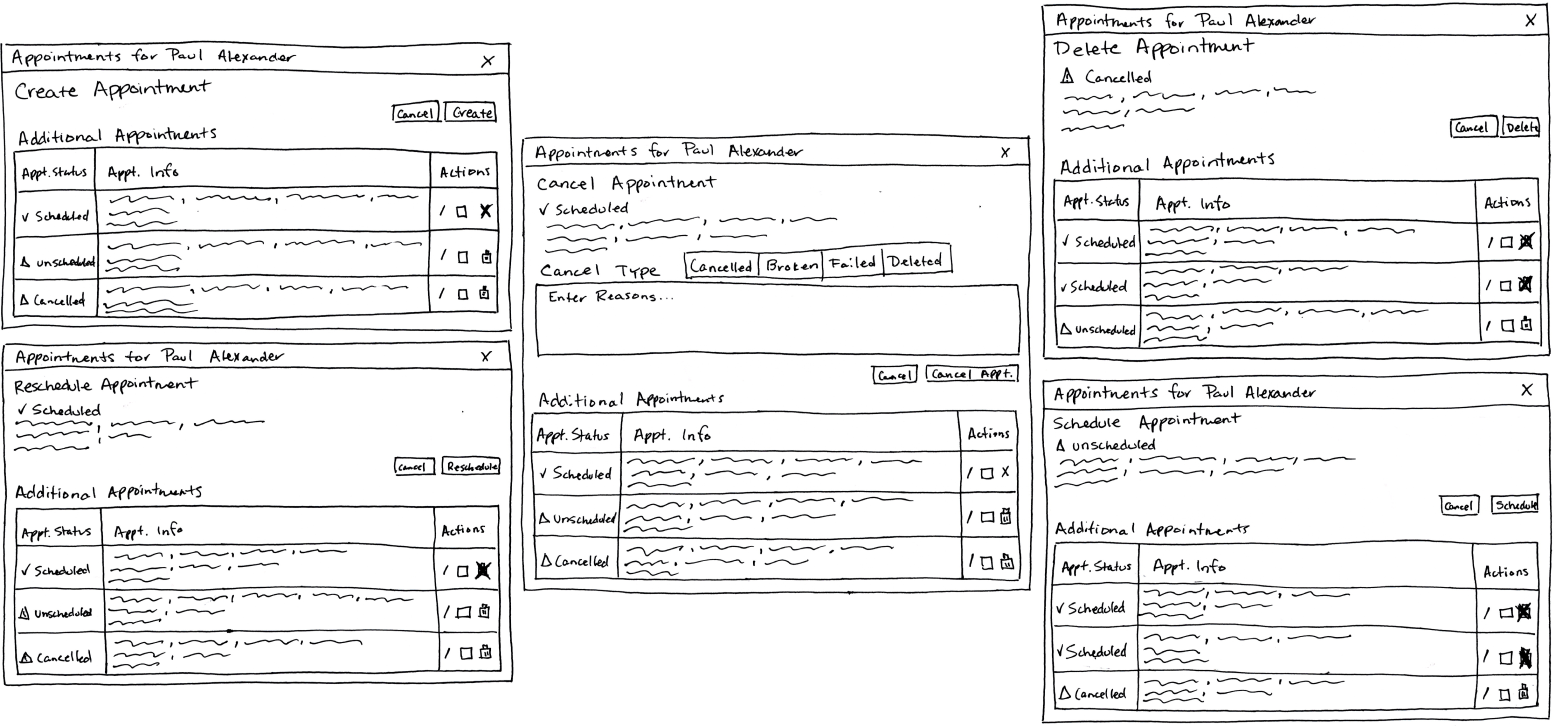 Appointments for Paul Alexander X
Create Appointment
Cancel Create
Additional Appointments
Appt. Status Appt. Info Actions
✓ Scheduled
Unscheduled
Cancelled
Appointments for Paul Alexander X
Reschedule Appointment
✓ Scheduled
Cancel Reschedule
Additional Appointments
Appt. Status Appt. Info Actions
✓ Scheduled
Unscheduled
Cancelled
Appointments for Paul Alexander X
Cancel Appointment
✓ Scheduled
Cancel Type Cancelled Broken Failed Deleted
Enter Reasons...
Cancel Cancel Appt.
Additional Appointments
Appt. Status Appt. Info Actions
✓ Scheduled
Unscheduled
Cancelled
Appointments for Paul Alexander X
Delete Appointment
Cancelled
Cancel Delete
Additional Appointments
Appt. Status Appt. Info Actions
✓ Scheduled
✓ Scheduled
Unscheduled
Appointments for Paul Alexander X
Schedule Appointment
Unscheduled
Cancel Schedule
Additional Appointments
Appt. Status Appt. Info Actions
✓ Scheduled
✓ Scheduled
Cancelled